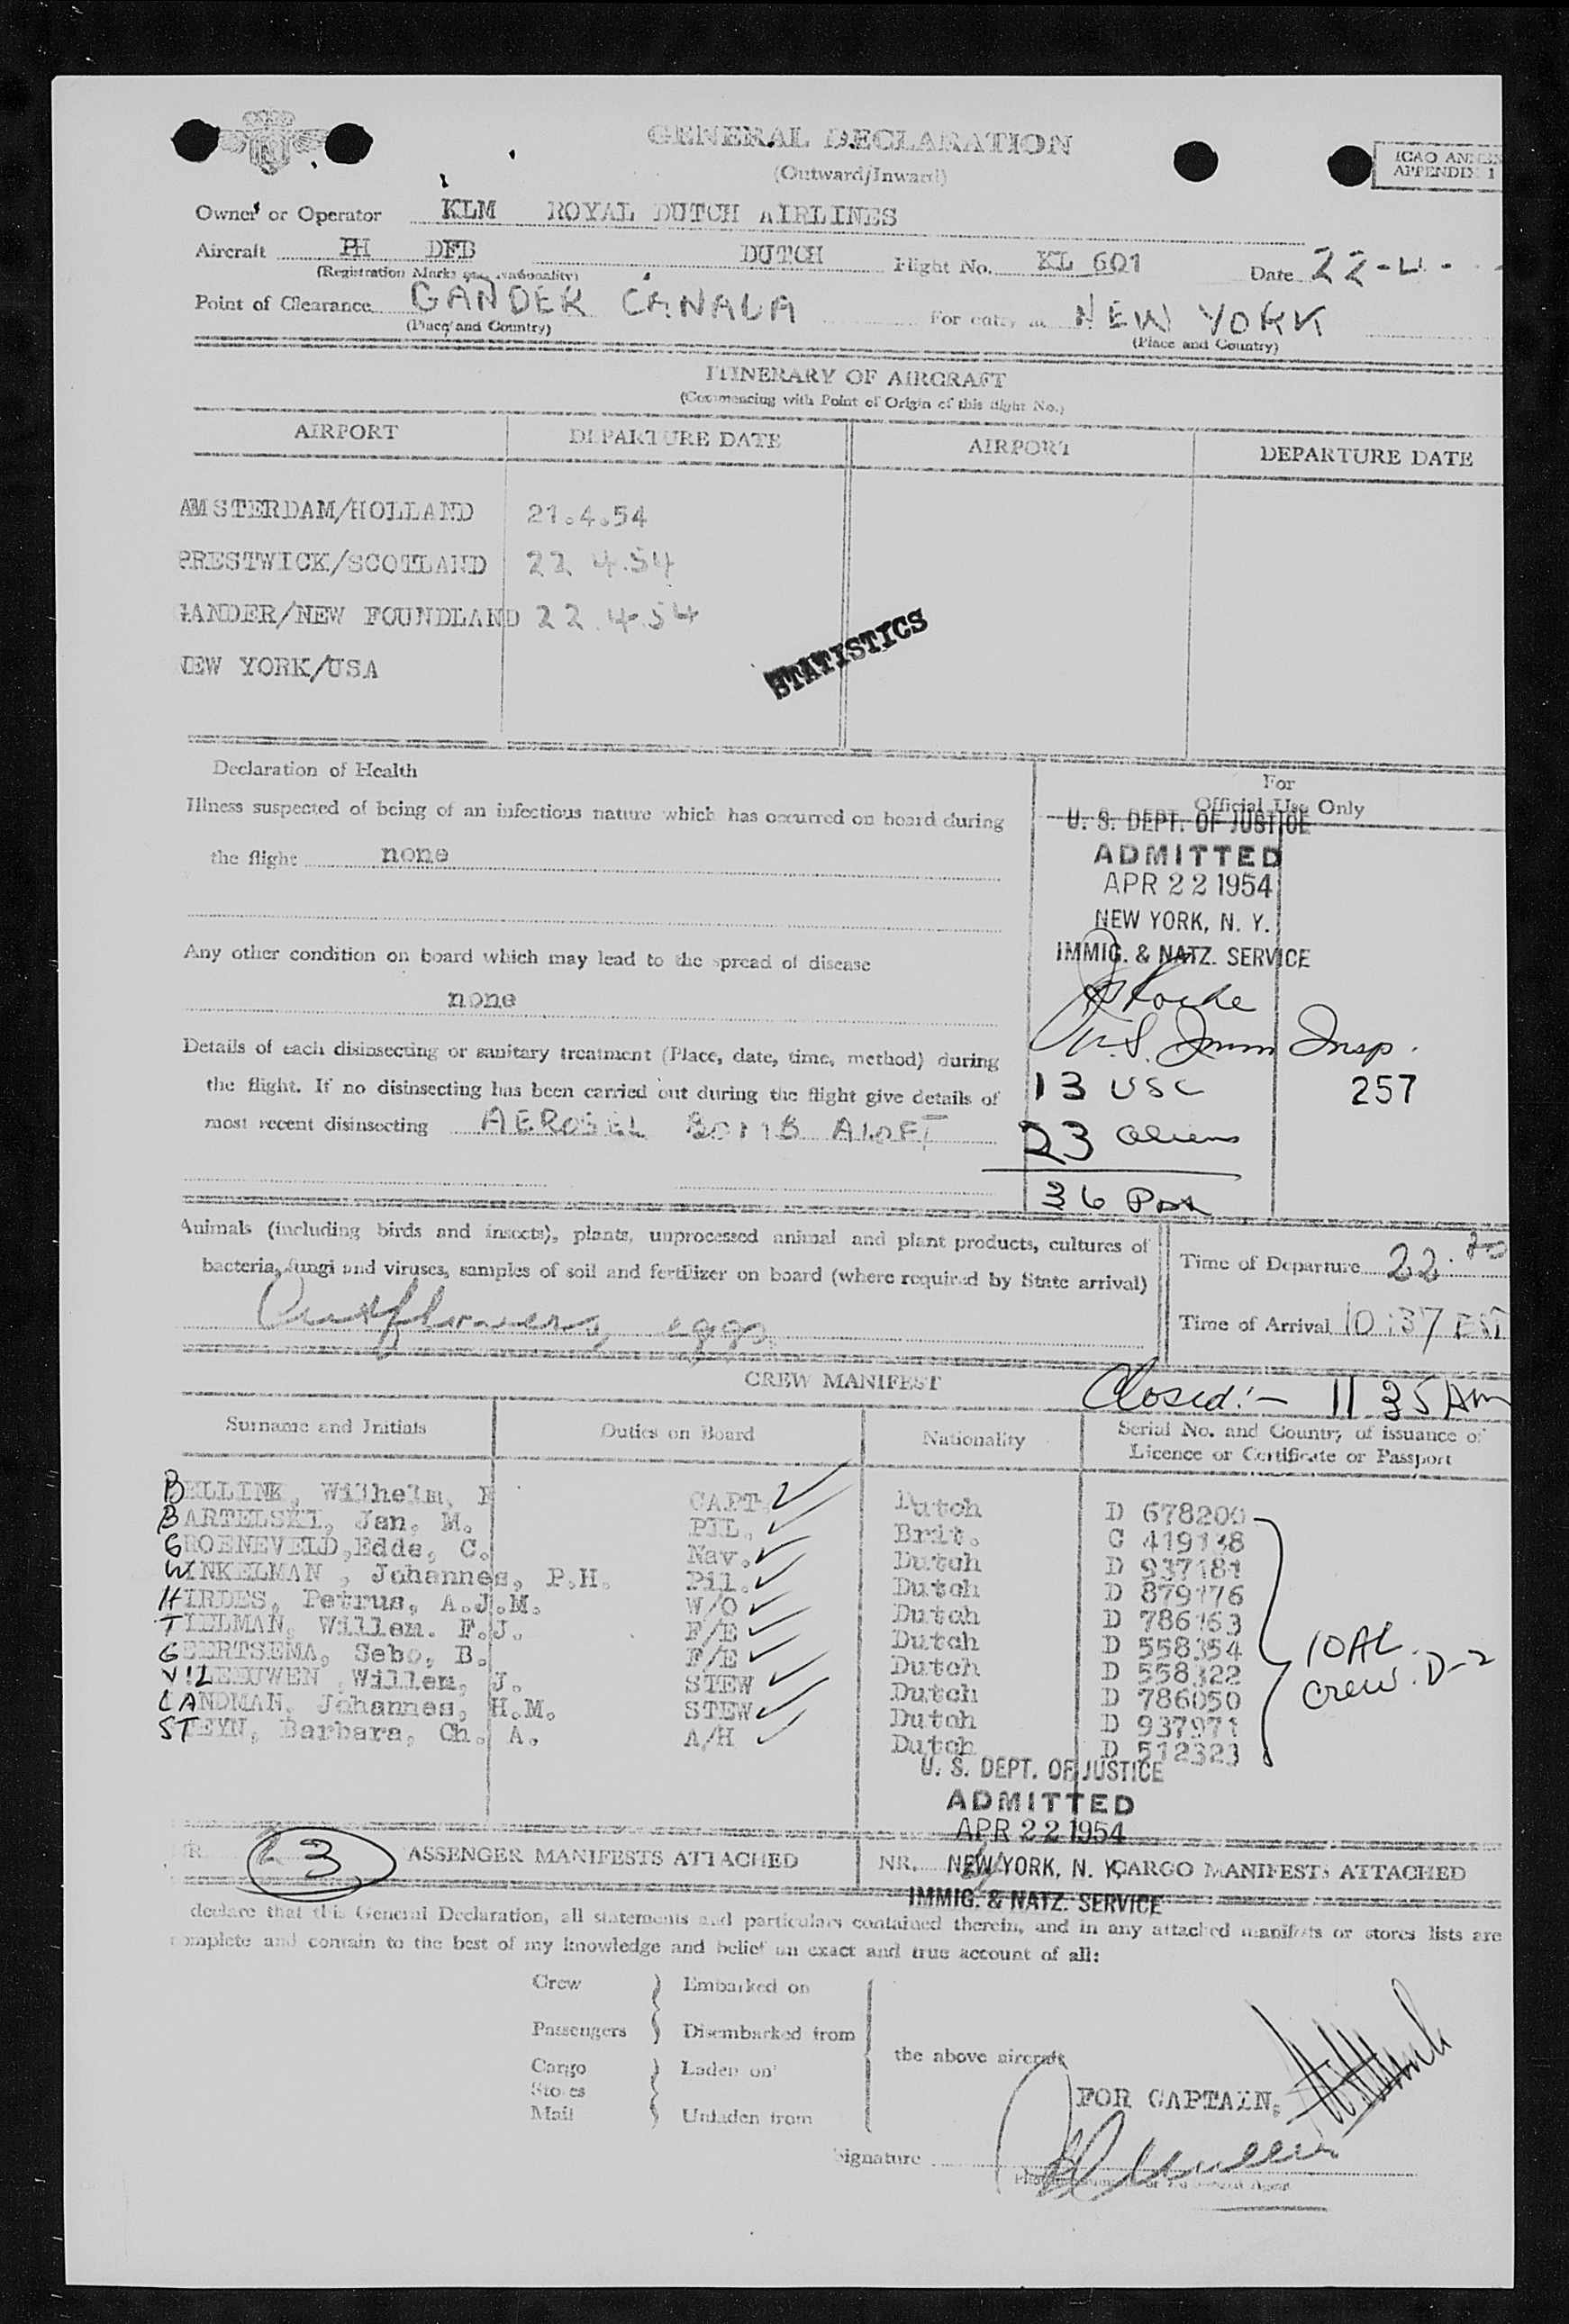 GENERAL DECLARATION
(Outward/Inward)
ICAO ANNEX
APPENDIX 1
Owner or Operator KLM ROYAL DUTCH AIRLINES
Aircraft PH DFB DUTCH Flight No. KL 601 Date 22-4-
(Registration Marks and Nationality)
Point of Clearance GANDER CANADA For entry at NEW YORK
(Place and Country) (Place and Country)
ITINERARY OF AIRCRAFT
(Commencing with Point of Origin of this flight No.)
AIRPORT DEPARTURE DATE AIRPORT DEPARTURE DATE
AMSTERDAM/HOLLAND 21.4.54
PRESTWICK/SCOTLAND 22 4.54
GANDER/NEW FOUNDLAND 22.4.54
NEW YORK/USA
STATISTICS
Declaration of Health
For
Official Use Only
Illness suspected of being of an infectious nature which has occurred on board during
the flight none
U. S. DEPT. OF JUSTICE
ADMITTED
APR 22 1954
NEW YORK, N. Y.
IMMIG. & NATZ. SERVICE
Any other condition on board which may lead to the spread of disease
none
U.S. Imm Insp.
257
Details of each disinsecting or sanitary treatment (Place, date, time, method) during
the flight. If no disinsecting has been carried out during the flight give details of
most recent disinsecting AEROSEL BOMB ALOFT
13 USC
23 aliens
36 Pax
Animals (including birds and insects), plants, unprocessed animal and plant products, cultures of
bacteria, fungi and viruses, samples of soil and fertilizer on board (where required by State arrival)
Cutflowers, eggs
Time of Departure 22.20
Time of Arrival 10:37 EST
CREW MANIFEST
Closed:- 11 35 Am
Surname and Initials Duties on Board Nationality Serial No. and Country of issuance of
Licence or Certificate or Passport
BELLINK, Wilhelm, F CAPT. Dutch D 678200
BARTELSKI, Jan, M. PIL. Brit. C 419138
GROENEVELD, Edde, C. Nav. Dutch D 937181
WINKELMAN, Johannes, P.H. Pil. Dutch D 879176
HIRDES, Petrus, A.J.M. W/O Dutch D 786163
TIELMAN, Willem. F.J. F/E Dutch D 558354
GEERTSEMA, Sebo, B. F/E Dutch D 558322
V.LEEUWEN, Willem, J. STEW Dutch D 786050
LANDMAN, Johannes, H.M. STEW Dutch D 937971
STEYN, Barbara, Ch. A. A/H Dutch D 512323
10 AL
Crew. D-2
U. S. DEPT. OF JUSTICE
ADMITTED
APR 22 1954
NEW YORK, N. Y.
IMMIG. & NATZ. SERVICE
R 3 ASSENGER MANIFESTS ATTACHED NR. CARGO MANIFESTS ATTACHED
declare that this General Declaration, all statements and particulars contained therein, and in any attached manifests or stores lists are
complete and contain to the best of my knowledge and belief an exact and true account of all:
Crew Embarked on
Passengers Disembarked from
the above aircraft
Cargo Laden on
Stores
Mail Unladen from
FOR CAPTAIN,
Signature